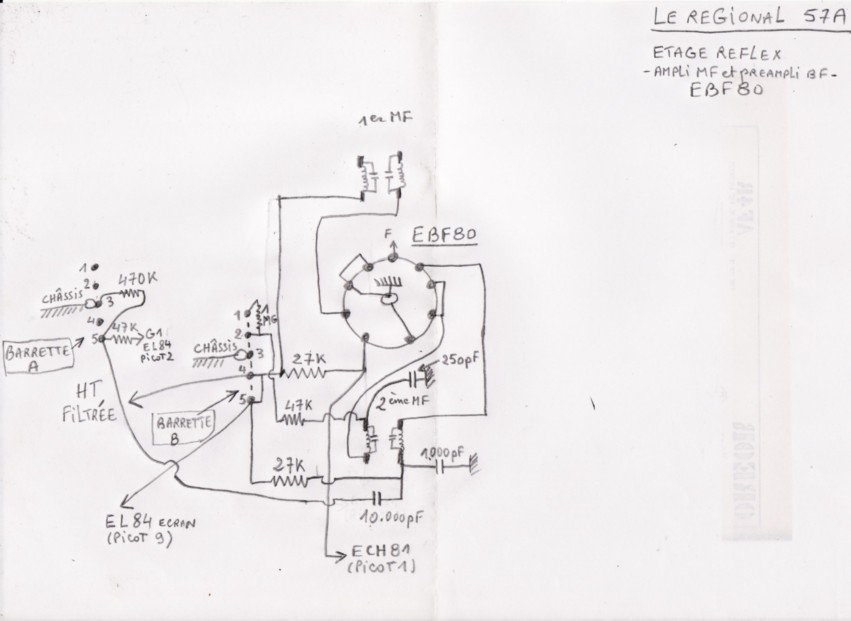 LE REGIONAL 57A
ETAGE REFLEX
- AMPLI MF et PREAMPLI BF -
EBF80
1er MF
F
EBF80
1
2
CHÂSSIS
3
470K
4
5
47K
G1
EL84
PICOT 2
BARRETTE
A
1
1
MG
2
CHÂSSIS
3
4
27K
5
250pF
HT
FILTRÉE
BARRETTE
B
47K
2ème MF
27K
1.000pF
10.000pF
EL84 ECRAN
(PICOT 9)
ECH81
(PICOT 1)